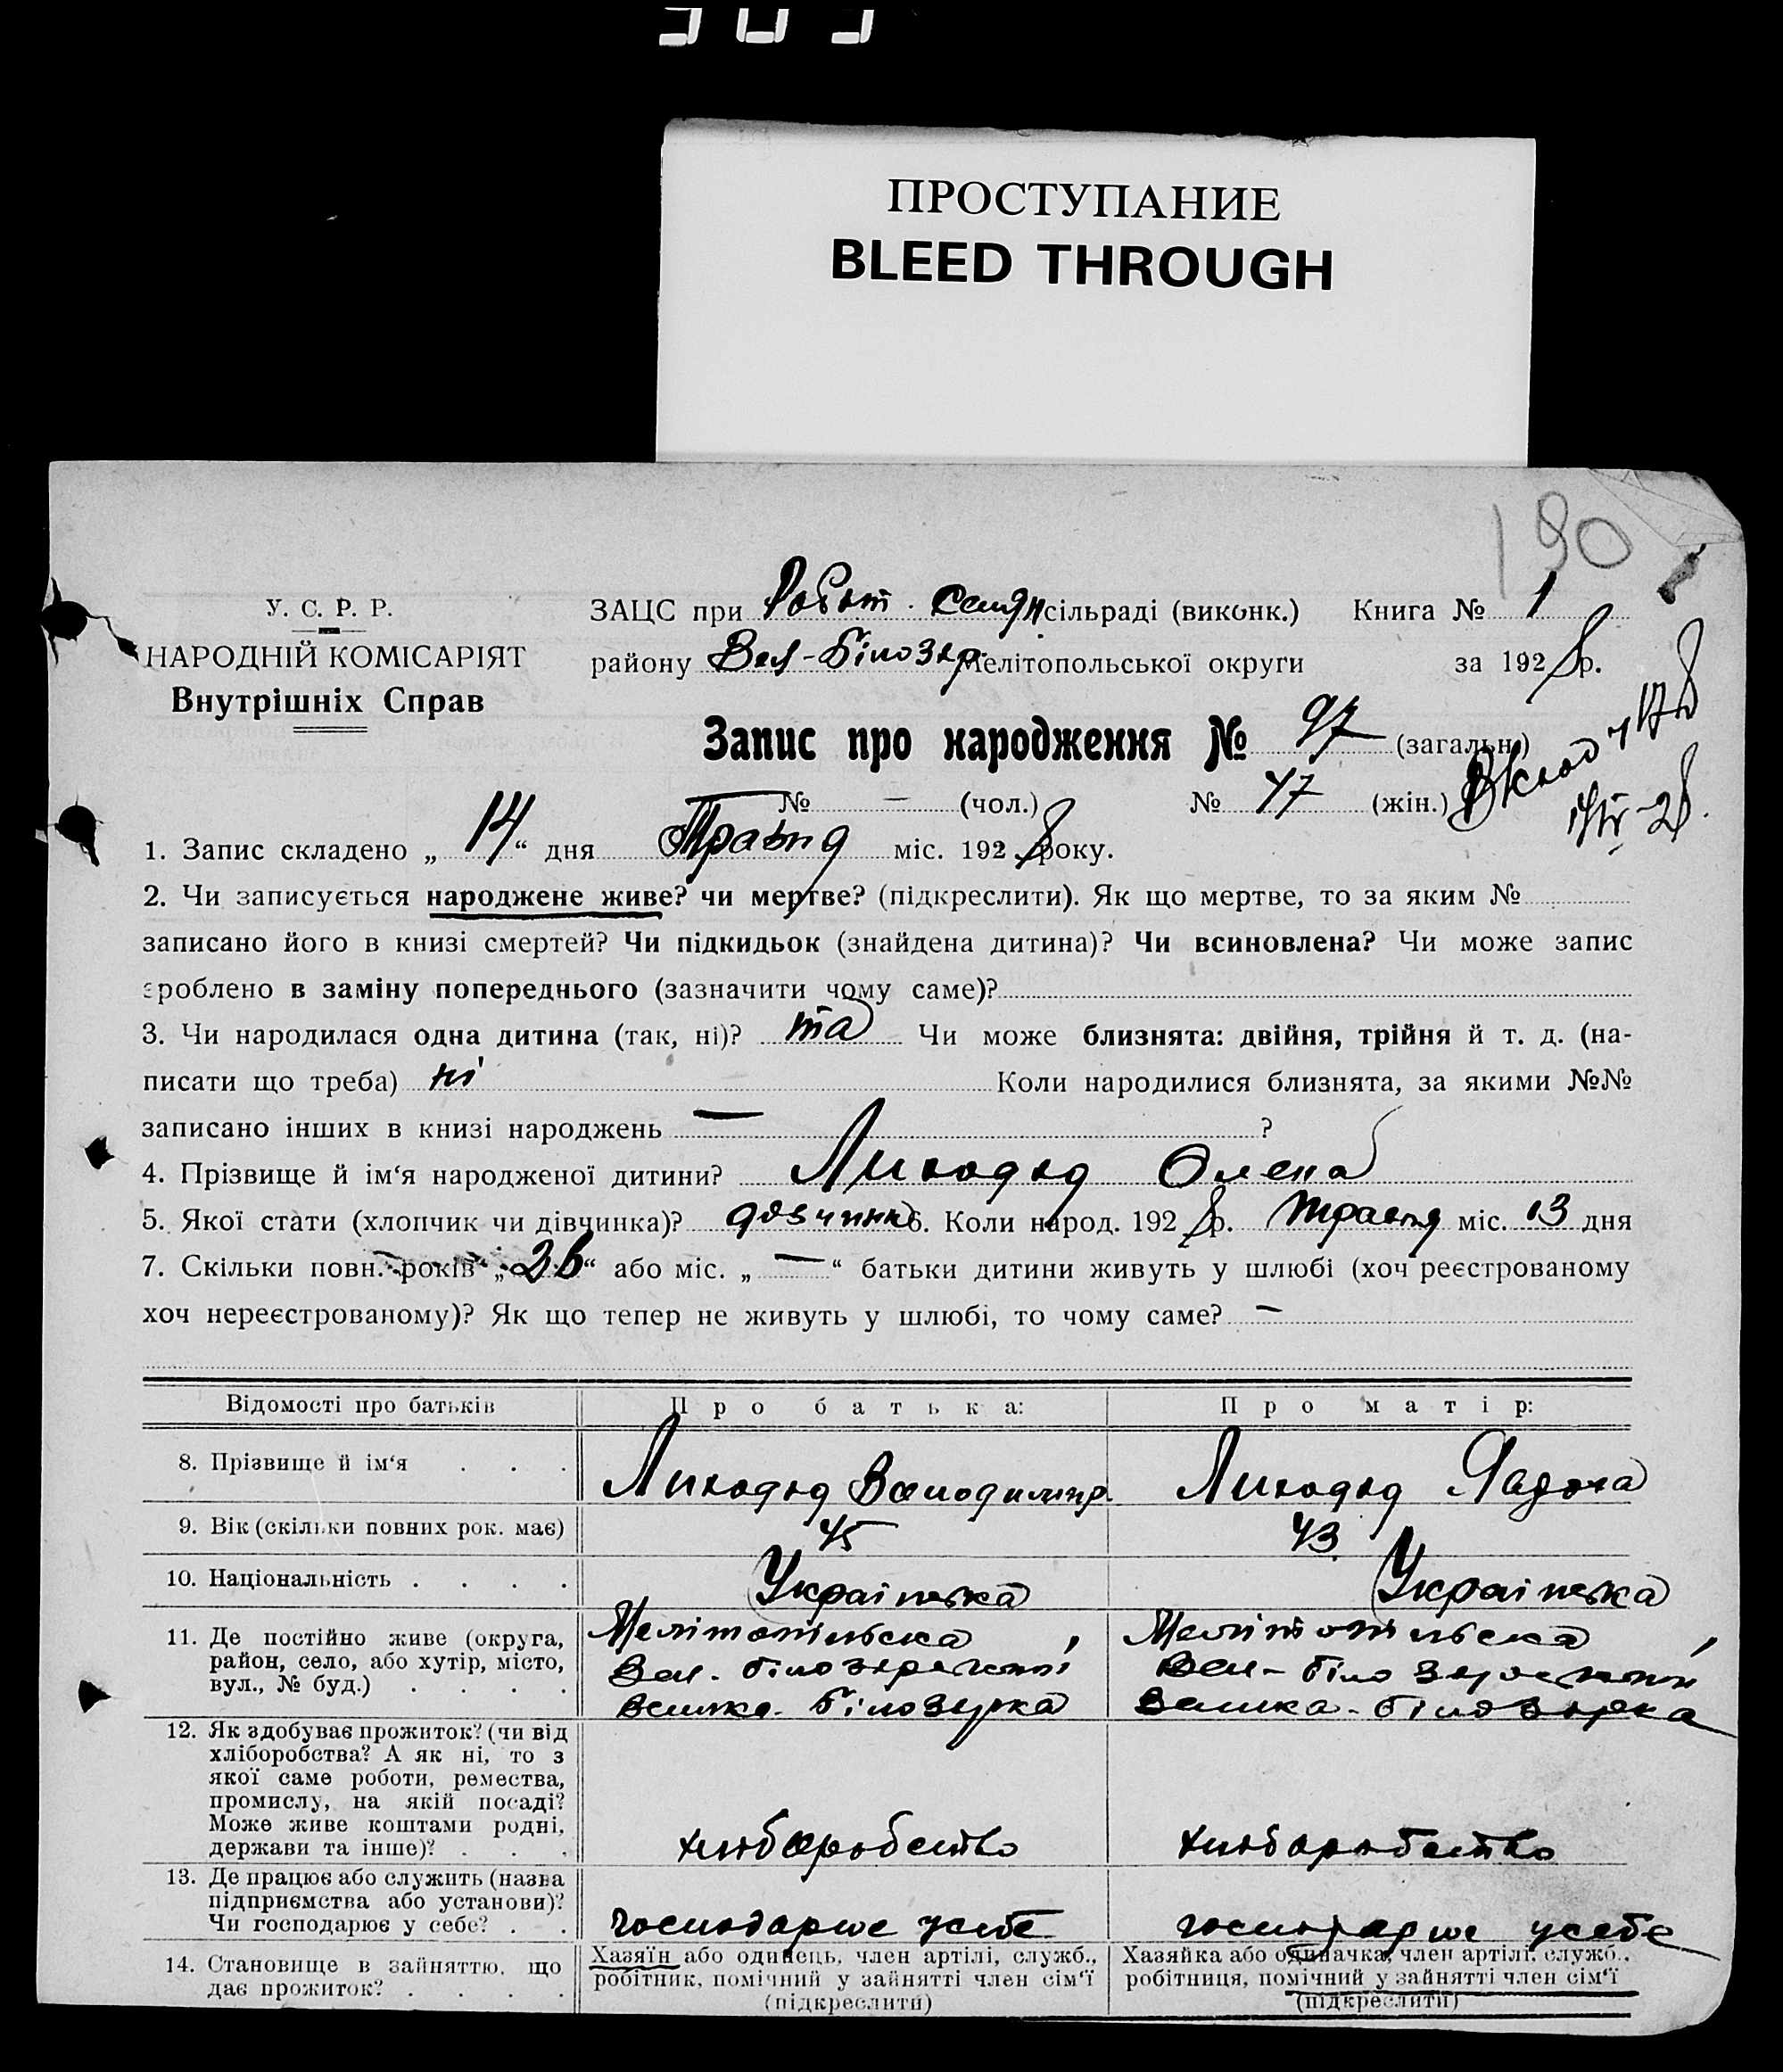 ПРОСТУПАНИЕ
BLEED THROUGH
190
У. С. Р. Р.
НАРОДНІЙ КОМІСАРІЯТ
Внутрішніх Справ
ЗАЦС при сільраді (виконк.) Книга № 1
району Вел-Білозер. Мелітопольської округи за 1928 р.
Запис про народження № 97 (загальн.)
№ — (чол.) № 47 (жін.)
1. Запис складено „14“ дня Травня міс. 1928 року.
2. Чи записується народжене живе? чи мертве? (підкреслити). Як що мертве, то за яким №
записано його в книзі смертей? Чи підкидьок (знайдена дитина)? Чи всиновлена? Чи може запис
зроблено в заміну попереднього (зазначити чому саме)?
3. Чи народилася одна дитина (так, ні)? та Чи може близнята: двійня, трійня й т. д. (на-
писати що треба) ні Коли народилися близнята, за якими №№
записано інших в книзі народжень — ?
4. Прізвище й ім‘я народженої дитини? Олена
5. Якої стати (хлопчик чи дівчинка)? дівчинка 6. Коли народ. 1928 р. Травня міс. 13 дня
7. Скільки повн. років „26“ або міс. „—“ батьки дитини живуть у шлюбі (хоч реєстрованому
хоч нереєстрованому)? Як що тепер не живуть у шлюбі, то чому саме? —
Відомості про батьків Про батька: Про матір:
8. Прізвище й ім‘я . . . Володимир
9. Вік (скільки повних рок. має) 45 43
10. Національність . . . . Українська Українська
11. Де постійно живе (округа, район, село, або хутір, місто, вул., № буд.) . . . .
Мелітопільська,
Вел-
Велика-Білозерка
Мелітопільська,
Вел-
Велика-Білозерка
12. Як здобуває прожиток? (чи від
хліборобства? А як ні, то з
якої саме роботи, ремества,
промислу, на якій посаді?
Може живе коштами родні,
держави та інше)? . . .
хліборобство хліборобство
13. Де працює або служить (назва
підприємства або установи)?
Чи господарює у себе? . .
господарює у себе господарює у себе
14. Становище в зайняттю, що
дає прожиток? . . . .
Хазяїн або одинець, член артілі, служб.,
робітник, помічний у зайнятті член сім‘ї
(підкреслити)
Хазяйка або одиначка, член артілі, служб.,
робітниця, помічний у зайнятті член сім‘ї
(підкреслити)